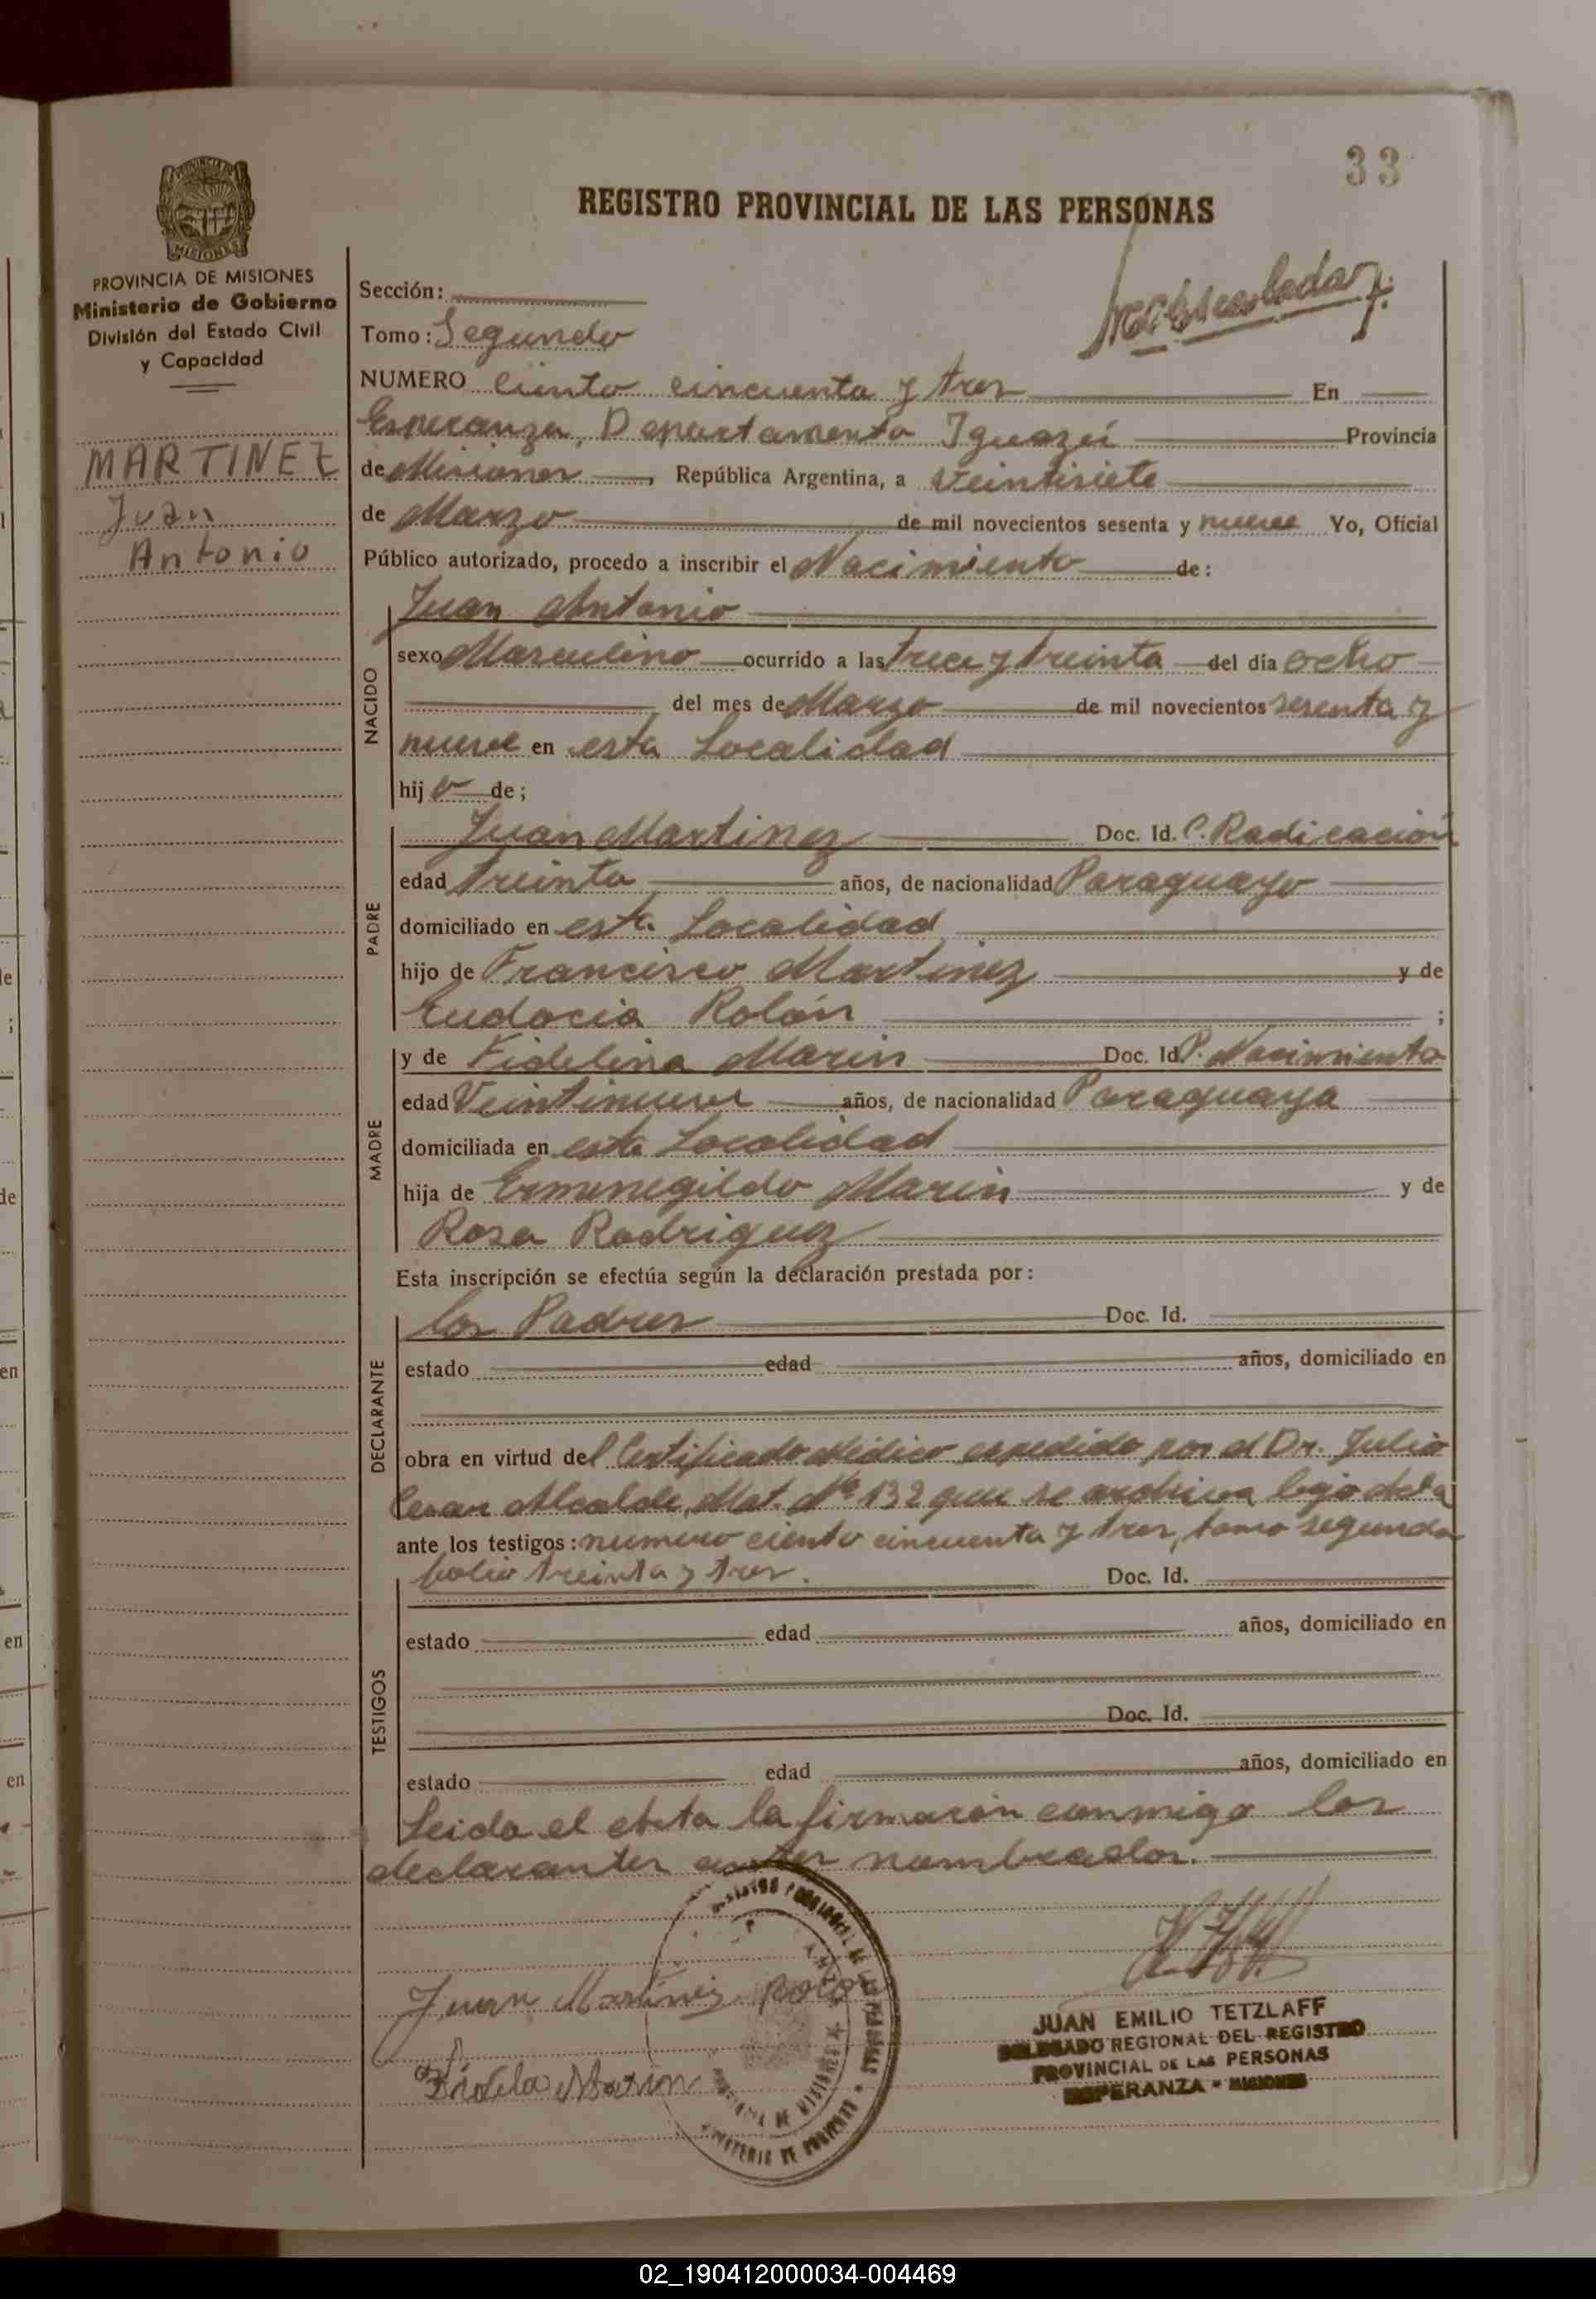 33
REGISTRO PROVINCIAL DE LAS PERSONAS
PROVINCIA DE MISIONES
Ministerio de Gobierno
División del Estado Civil
y Capacidad
MARTINEZ
Juan
Antonio
Sección:
Tomo: Segundo
NUMERO Ciento cincuenta y tres En
Esperanza, Departamento Iguazú Provincia
de Misiones, República Argentina, a veintisiete
de Marzo de mil novecientos sesenta y nueve Yo, Oficial
Público autorizado, procedo a inscribir el Nacimiento de:
NACIDO
Juan Antonio
sexo Masculino ocurrido a las trece y treinta del día ocho
del mes de Marzo de mil novecientos sesenta y
nueve en esta Localidad
hijo de;
PADRE
Juan Martinez Doc. Id. C. Radicación
edad treinta años, de nacionalidad Paraguayo
domiciliado en esta Localidad
hijo de Francisco Martinez y de
Eudocia Rolón ;
MADRE
y de Fidelina Marin Doc. Id. P. Nacimiento
edad Veintinueve años, de nacionalidad Paraguaya
domiciliada en esta Localidad
hija de Ermenegildo Marin y de
Rosa Rodriguez
Esta inscripción se efectúa según la declaración prestada por:
DECLARANTE
los Padres Doc. Id.
estado edad años, domiciliado en
obra en virtud del Certificado Médico expedido por el Dr. Julio
Cesar Alcalde, Mat. Nº 132 que se archiva bajo del a
ante los testigos: numero ciento cincuenta y tres, tomo segundo
folio treinta y tres. Doc. Id.
TESTIGOS
estado edad años, domiciliado en
Doc. Id.
estado edad años, domiciliado en
Leida el Acta la firmarón conmigo los
declarantes antes nombrados.
Juan Martinez Rolon
Fidela Marin
JUAN EMILIO TETZLAFF
DELEGADO REGIONAL DEL REGISTRO
PROVINCIAL DE LAS PERSONAS
ESPERANZA - MISIONES
02_190412000034-004469